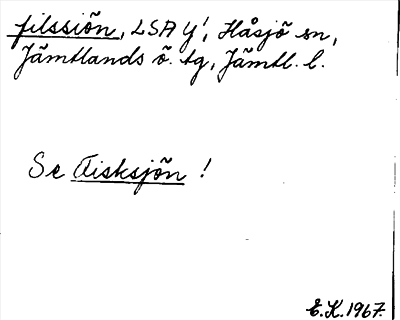 filssiön, LSA y', Håsjö sn,
Jämtlands ö. tg, Jämtl. l.
Se Fisksjön !
E.K. 1967.